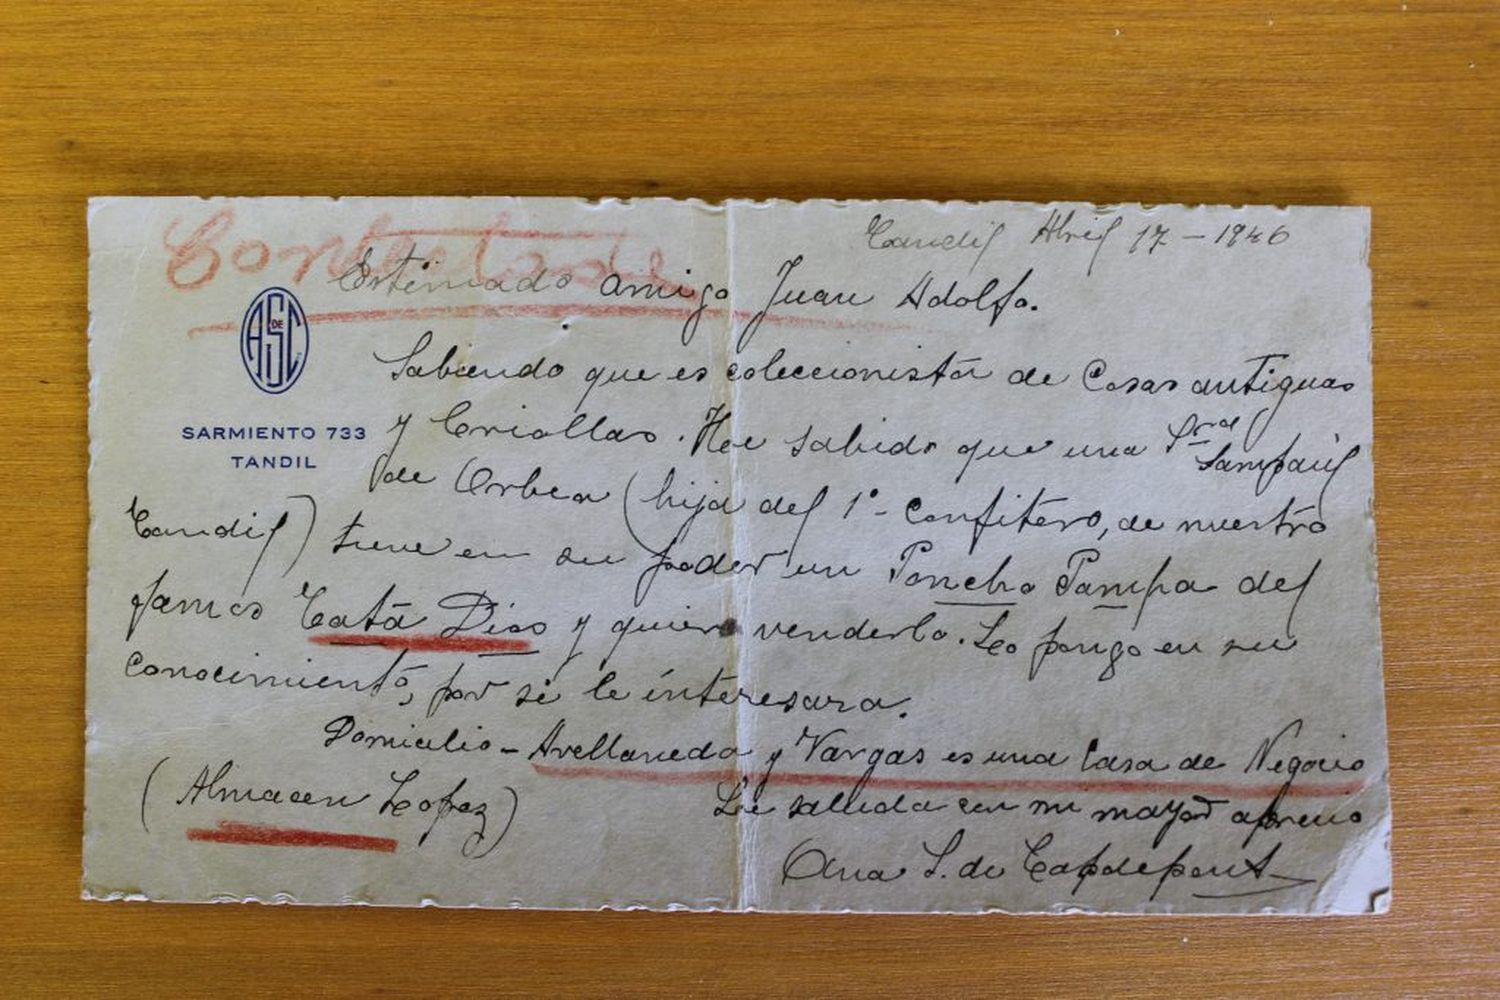 Contestada
Tandil Abril 17 - 1946
Estimado amigo Juan Adolfo.
A DE S C
SARMIENTO 733
TANDIL
Sabiendo que es coleccionista de Cosas antiguas
y Criollas. He sabido que una Sra
de Orbea (hija del 1º - confitero, de nuestro
Tandil) tiene en su poder un Poncho Pampa del
famoso Tata Dios y quiere venderlo. Lo pongo en su
conocimiento, por si le interesara.
Domicilio - Avellaneda y Vargas es una Casa de Negocio
(Almacen Lopez)
Le saluda con mi mayor aprecio
Ana S. de Capdepont